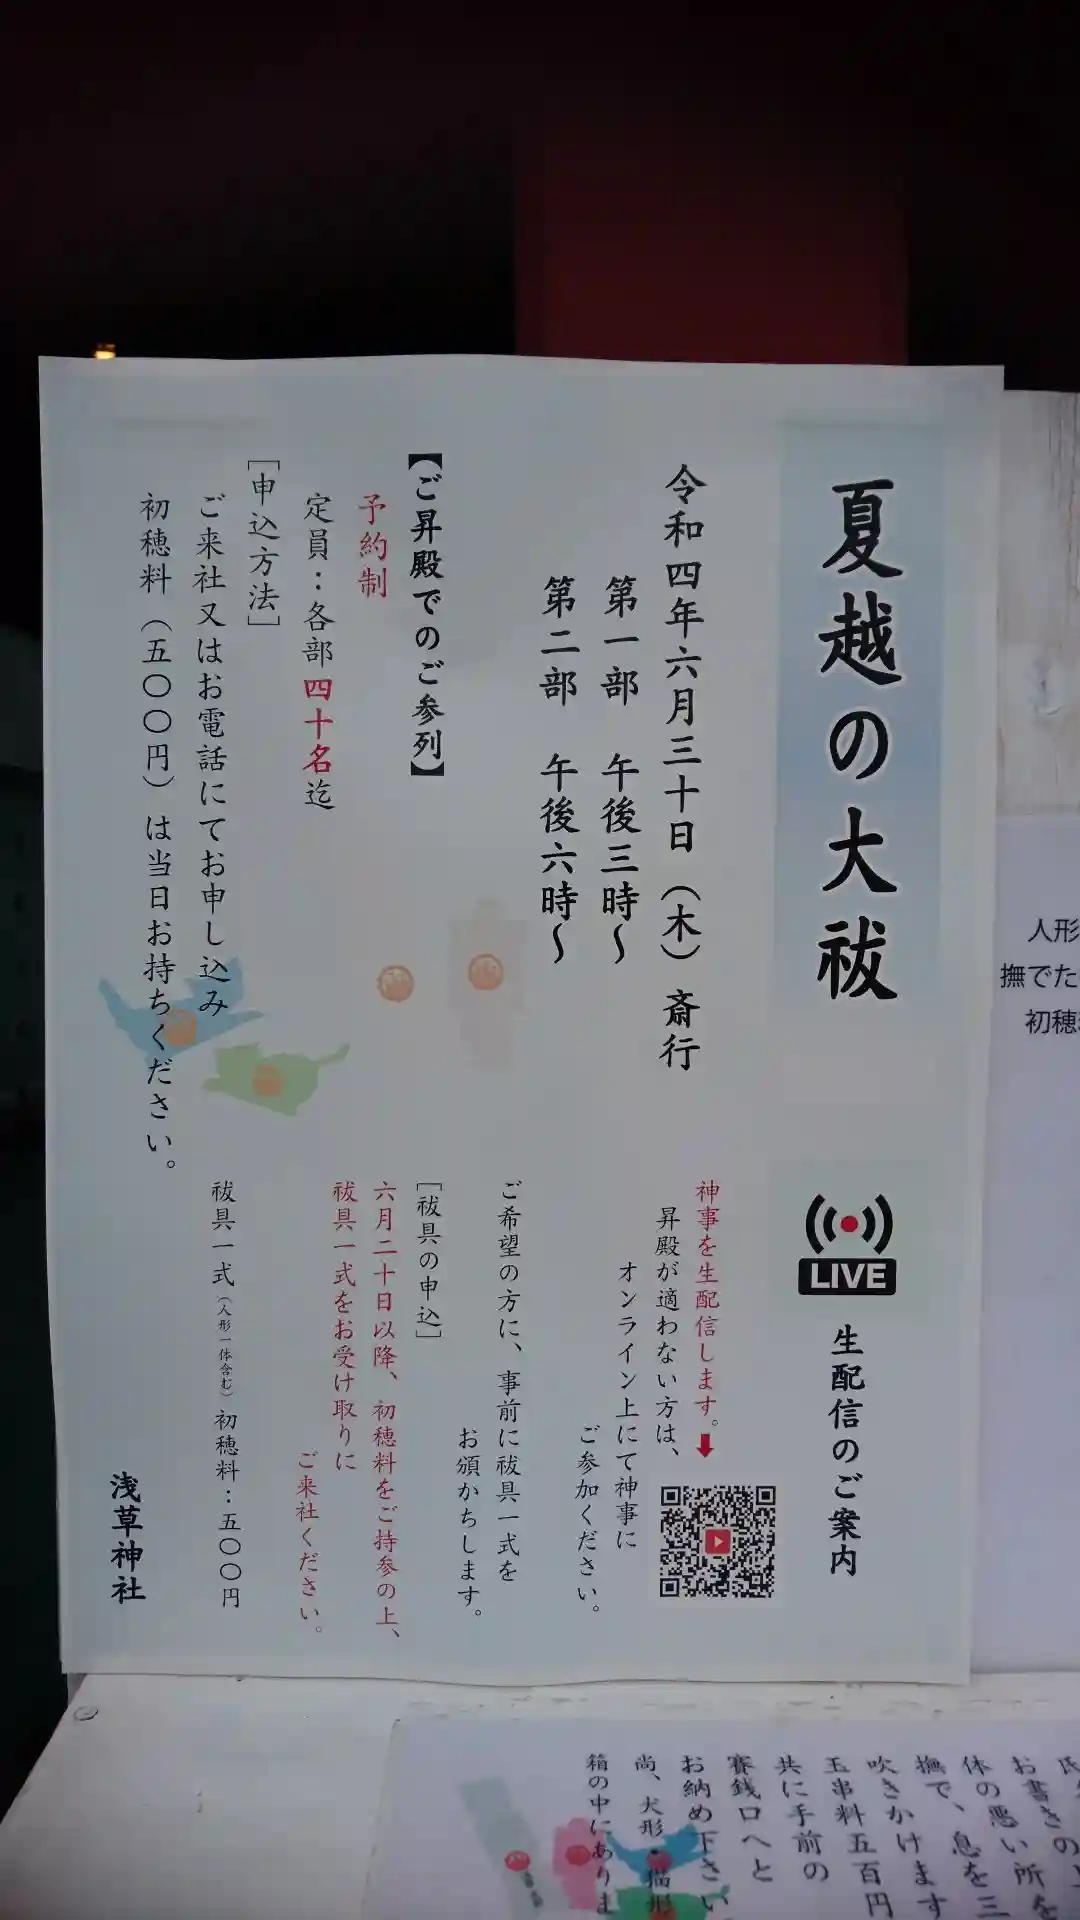 夏越の大祓
令和四年六月三十日（木）斎行
第一部　午後三時〜
第二部　午後六時〜
【ご昇殿でのご参列】
予約制
定員：各部四十名迄
［申込方法］
ご来社又はお電話にてお申し込み
初穂料（五〇〇円）は当日お持ちください。
LIVE
生配信のご案内
神事を生配信します。
昇殿が適わない方は、
オンライン上にて神事に
ご参加ください。
ご希望の方に、事前に祓具一式を
お頒かちします。
［祓具の申込］
六月二十日以降、初穂料をご持参の上、
祓具一式をお受け取りに
ご来社ください。
祓具一式（人形一体含む）初穂料：五〇〇円
浅草神社
人形
撫でた
初穂
お書きの
体の悪い所を
撫で、息を三
吹きかけます
玉串料五百円
共に手前の
賽銭口へと
お納め下さい
尚、犬形・猫形
箱の中にありま